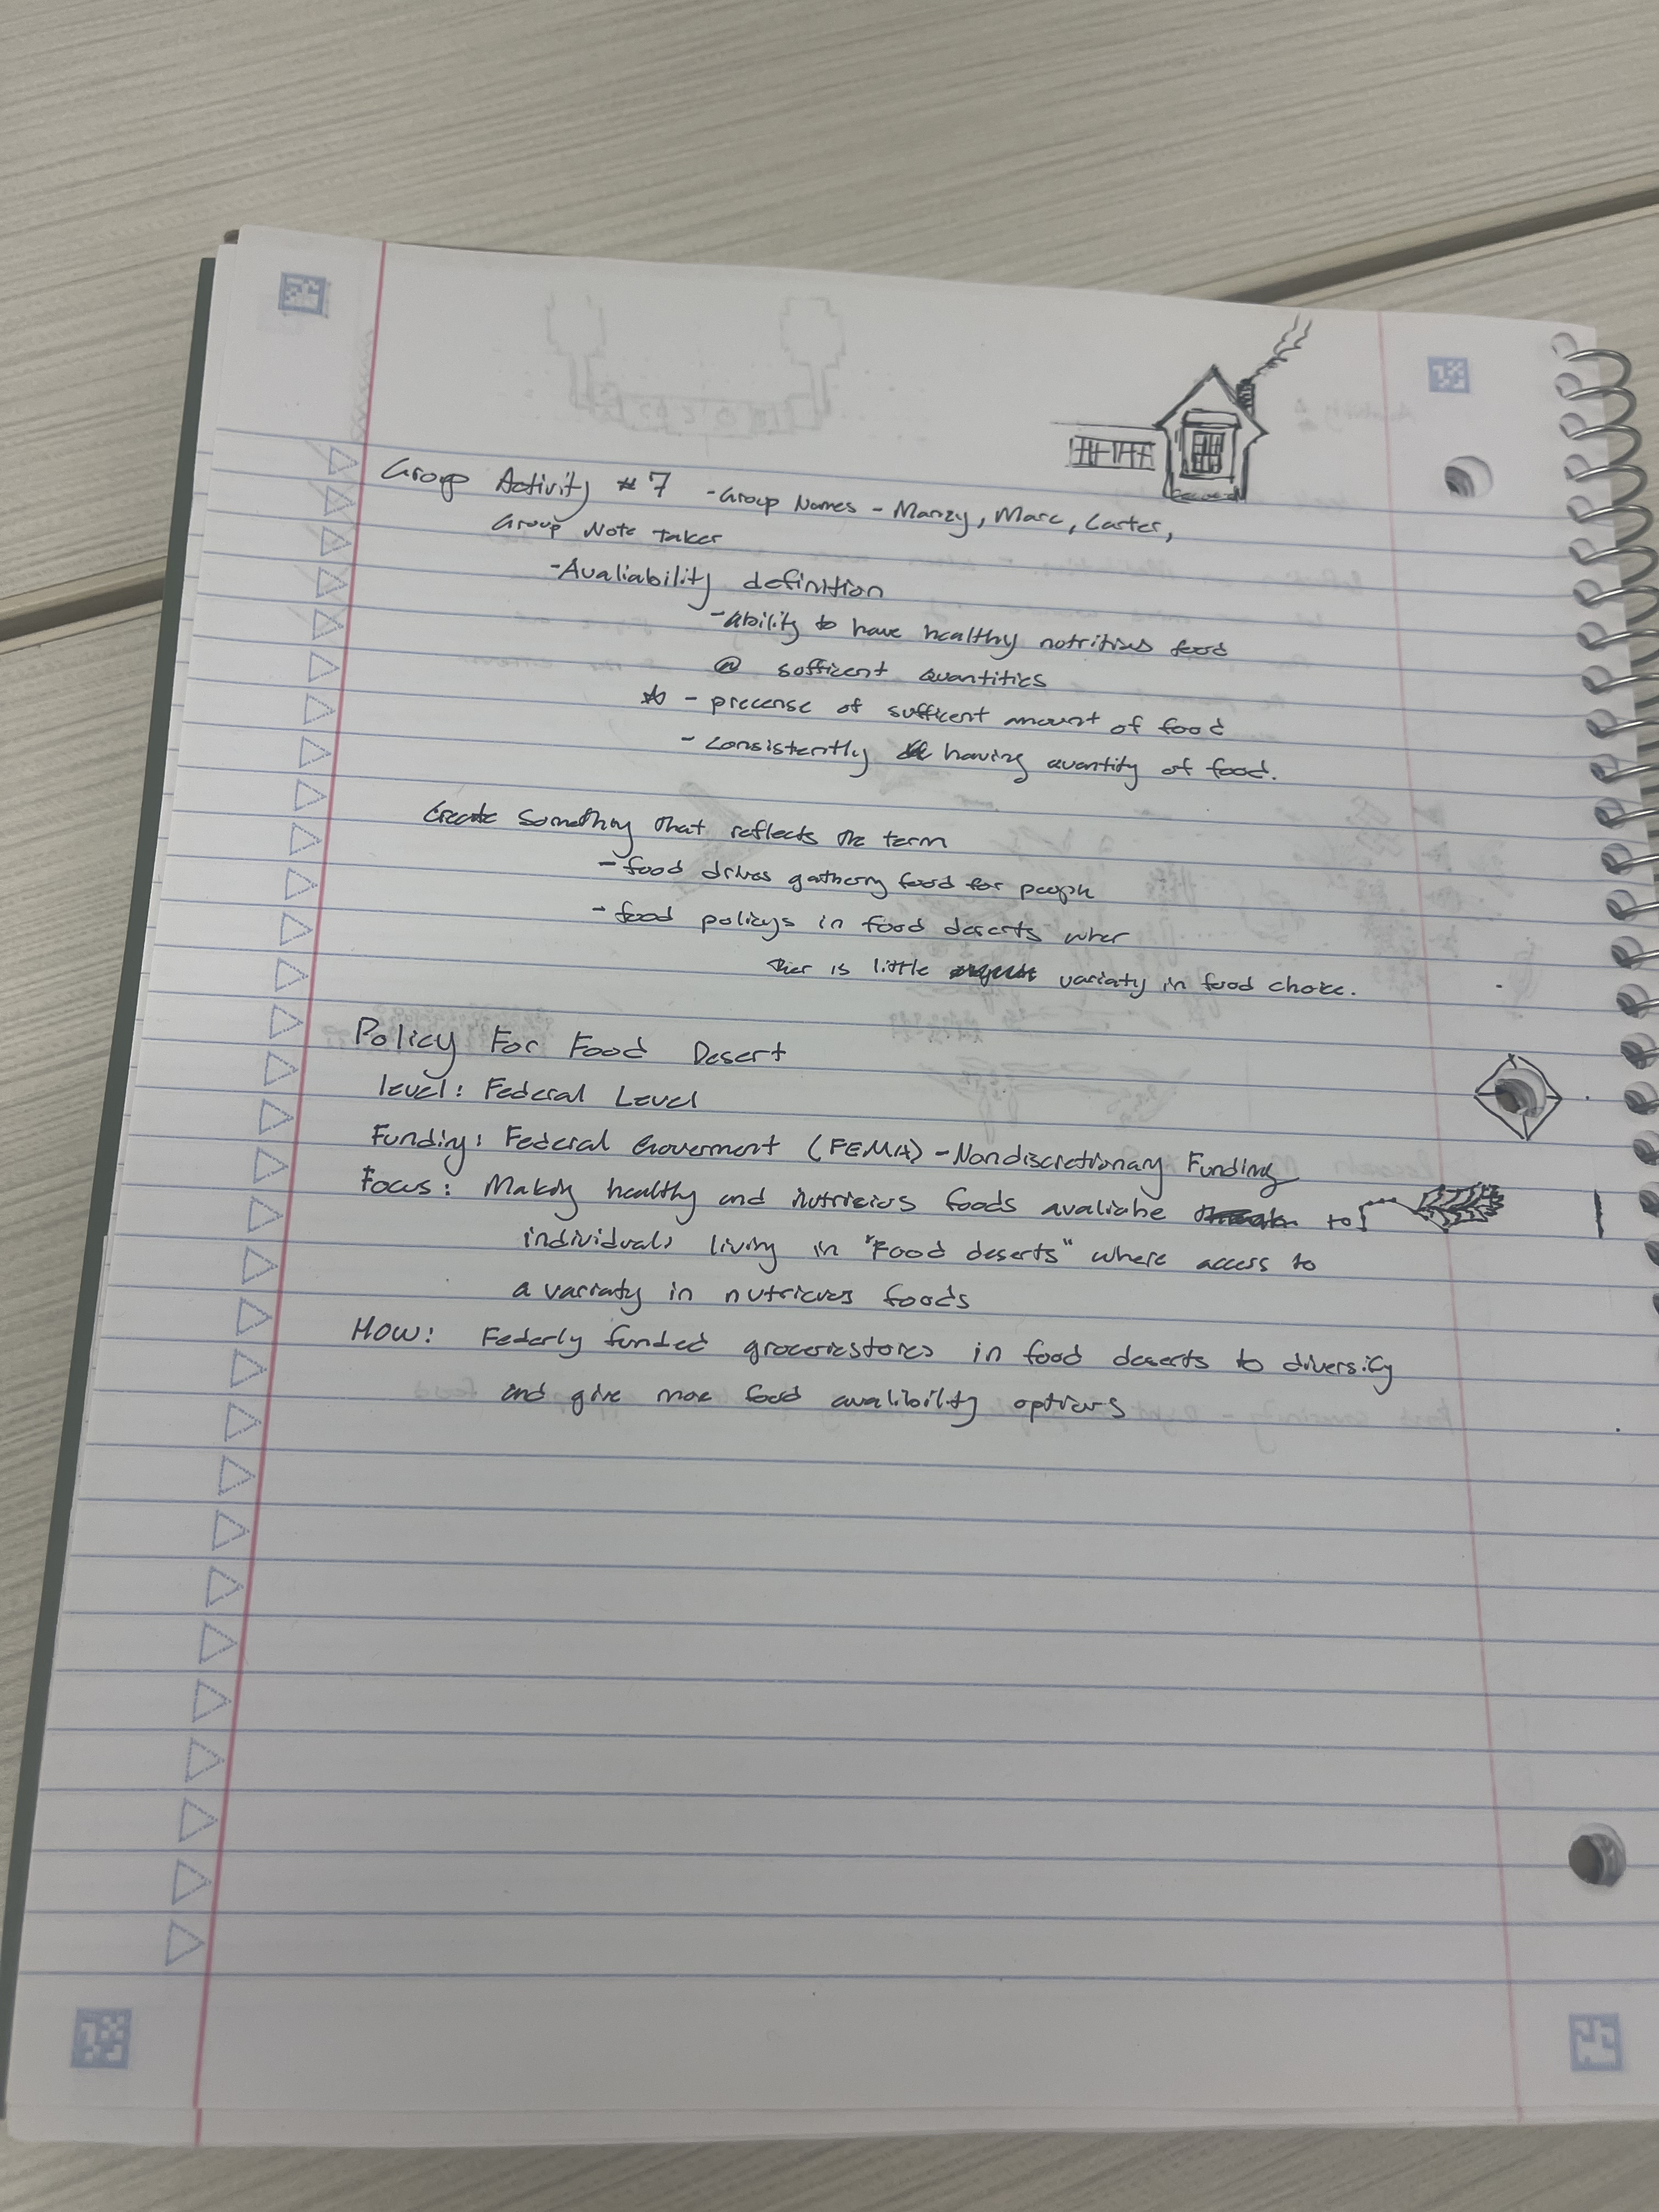 Group Activity #7 - Group Names - Manzy, Marc, Carter,
Group Note Taker
- Avaliability definition
- ability to have healthy notritius food
@ sofficent quantities
☆ - precense of sufficent amount of food
- consistently having quantity of food.
Create something that reflects the term
- food drives gathering food for people
- food policys in food deserts wher
ther is little variaty in food choice.
Policy For Food Desert
level: Federal Level
Funding: Federal Goverment (FEMA) - Nondiscretionary Funding
Focus: Making healthy and nutricius foods avaliable to
individuals living in "Food deserts" where access to
a variaty in nutricius foods
How: Federly funded grocerie stores in food deserts to diversify
and give more food avalibility options